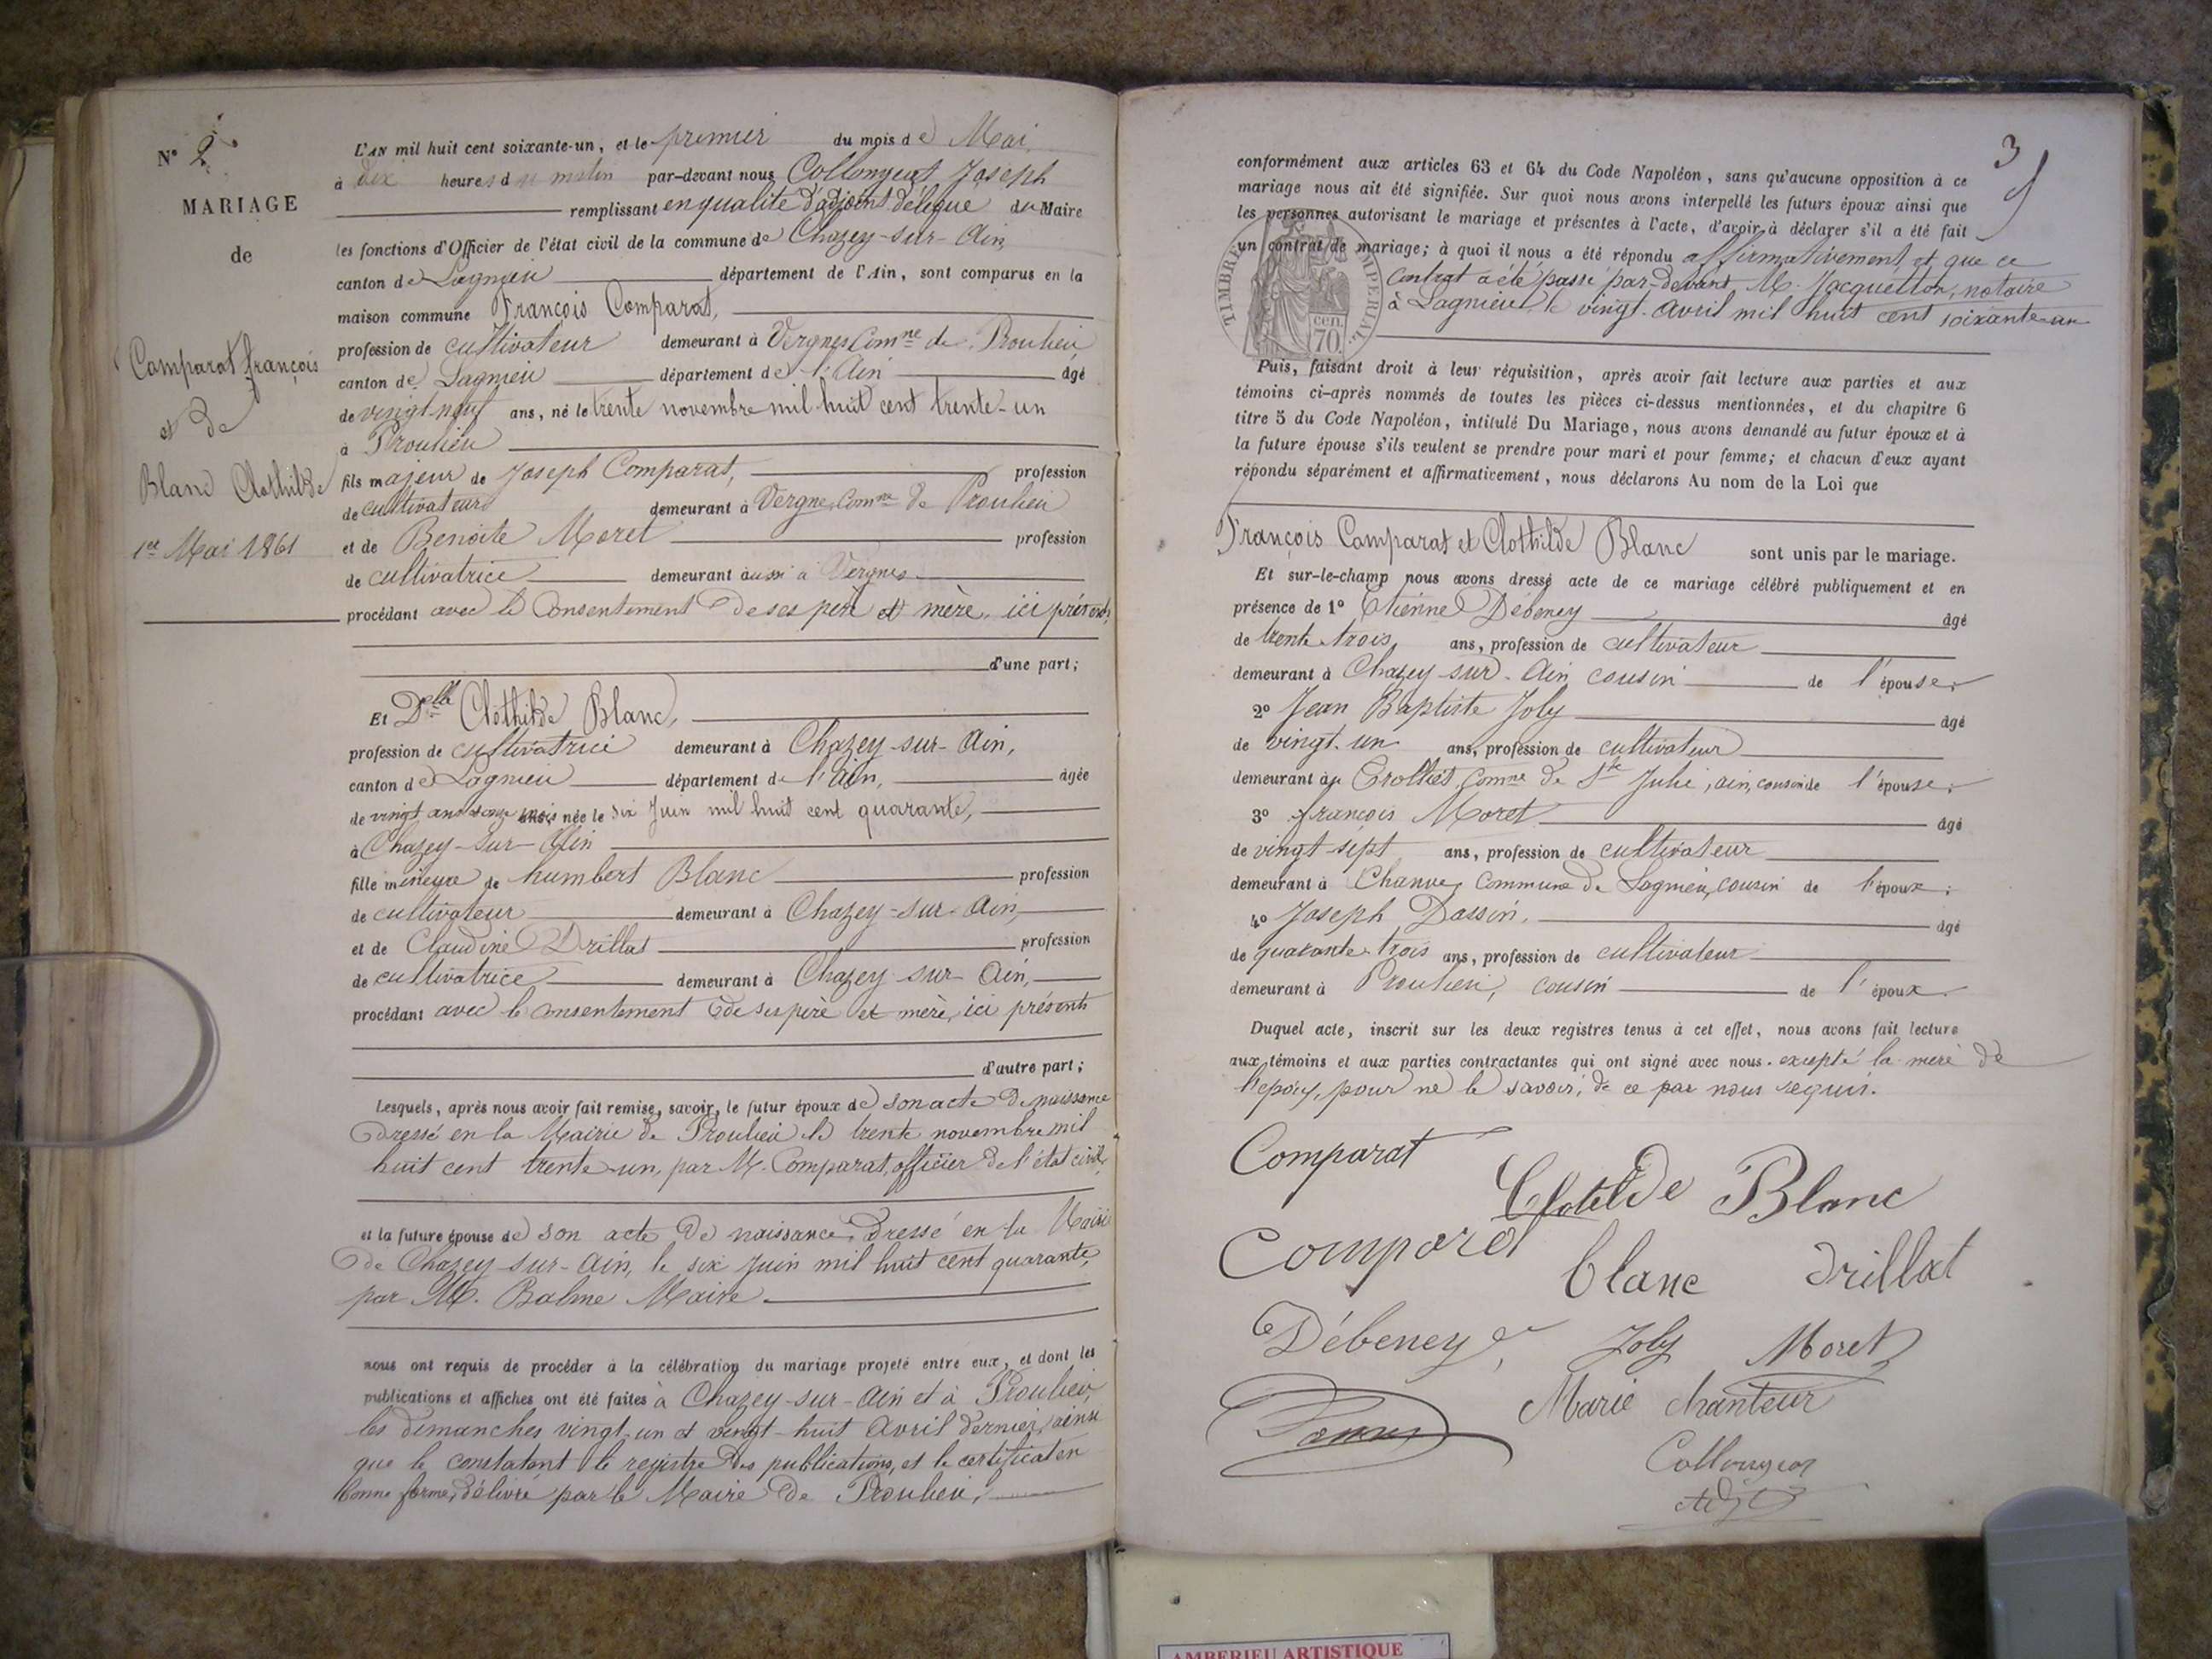 N° 2
MARIAGE
de
Comparat françois
et de
Blanc Clothilde
1er Mai 1861
L'AN mil huit cent soixante-un, et le premier du mois de Mai
à dix heures du matin par-devant nous Collongeat Joseph
remplissant en qualité d'adjoint délégué du Maire
les fonctions d'Officier de l'état civil de la commune de Chazey-sur-Ain
canton de Lagnieu département de l'Ain, sont comparus en la
maison commune François Comparat,
profession de cultivateur demeurant à Vergnes Comne de Proulieu
canton de Lagnieu département de l'Ain âgé
de vingt-neuf ans, né le trente novembre mil huit cent trente-un
à Proulieu
fils majeur de Joseph Comparat, profession
de cultivateur demeurant à Vergne, Comne de Proulieu
et de Benoite Moret profession
de cultivatrice demeurant aussi à Vergnes
procédant avec le consentement de ses père et mère, ici présents
d'une part;
Et Delle Clothilde Blanc,
profession de cultivatrice demeurant à Chazey-sur-Ain,
canton de Lagnieu département de l'Ain, âgée
de vingt ans onze mois née le six Juin mil huit cent quarante,
à Chazey-sur-Ain
fille mineure de humbert Blanc profession
de cultivateur demeurant à Chazey-sur-Ain,
et de Claudine Drillat profession
de cultivatrice demeurant à Chazey-sur-Ain,
procédant avec le consentement de ses père et mère, ici présents
d'autre part;
Lesquels, après nous avoir fait remise, savoir, le futur époux de son acte de naissance
dressé en la Mairie de Proulieu le trente novembre mil
huit cent trente-un, par M. Comparat, officier de l'état civil,
et la future épouse de son acte de naissance, dressé en la Mairie
de Chazey-sur-Ain, le six Juin mil huit cent quarante,
par M. Balme Maire
nous ont requis de procéder à la célébration du mariage projeté entre eux, et dont les
publications et affiches ont été faites à Chazey-sur-Ain et à Proulieu,
les dimanches vingt-un et vingt-huit Avril dernier, ainsi
que le constatent le registre des publications, et le certificat en
bonne forme, délivré par le Maire de Proulieu,
3
conformément aux articles 63 et 64 du Code Napoléon, sans qu'aucune opposition à ce
mariage nous ait été signifiée. Sur quoi nous avons interpellé les futurs époux ainsi que
les personnes autorisant le mariage et présentes à l'acte, d'avoir à déclarer s'il a été fait
un contrat de mariage; à quoi il nous a été répondu affirmativement et que ce
contrat a été passé par-devant M. Jacquetton, notaire
à Lagnieu, le vingt Avril mil huit cent soixante-un
TIMBRE IMPERIAL
70 cen.
Puis, faisant droit à leur réquisition, après avoir fait lecture aux parties et aux
témoins ci-après nommés de toutes les pièces ci-dessus mentionnées, et du chapitre 6
titre 5 du Code Napoléon, intitulé Du Mariage, nous avons demandé au futur époux et à
la future épouse s'ils veulent se prendre pour mari et pour femme; et chacun d'eux ayant
répondu séparément et affirmativement, nous déclarons Au nom de la Loi que
François Comparat et Clothilde Blanc sont unis par le mariage.
Et sur-le-champ nous avons dressé acte de ce mariage célébré publiquement et en
présence de 1° Etienne Débeney âgé
de trente-trois ans, profession de cultivateur
demeurant à Chazey-sur-Ain cousin de l'épouse;
2° Jean Baptiste Joly âgé
de vingt-un ans, profession de cultivateur
demeurant à Comne de Ste Julie, ain, cousin de l'épouse;
3° françois Moret âgé
de vingt-sept ans, profession de cultivateur
demeurant à Chanves Commune de Lagnieu, cousin de l'époux;
4° Joseph âgé
de quarante-trois ans, profession de cultivateur
demeurant à Proulieu, cousin de l'époux.
Duquel acte, inscrit sur les deux registres tenus à cet effet, nous avons fait lecture
aux témoins et aux parties contractantes qui ont signé avec nous. excepté la mère de
l'époux, pour ne le savoir, de ce par nous requis.
Comparat
Clotilde Blanc
Comparat
blanc drillat
Débeney Joly Moret
Marie chanteur
Collongeat
Adjt
AMBERIEU ARTISTIQUE